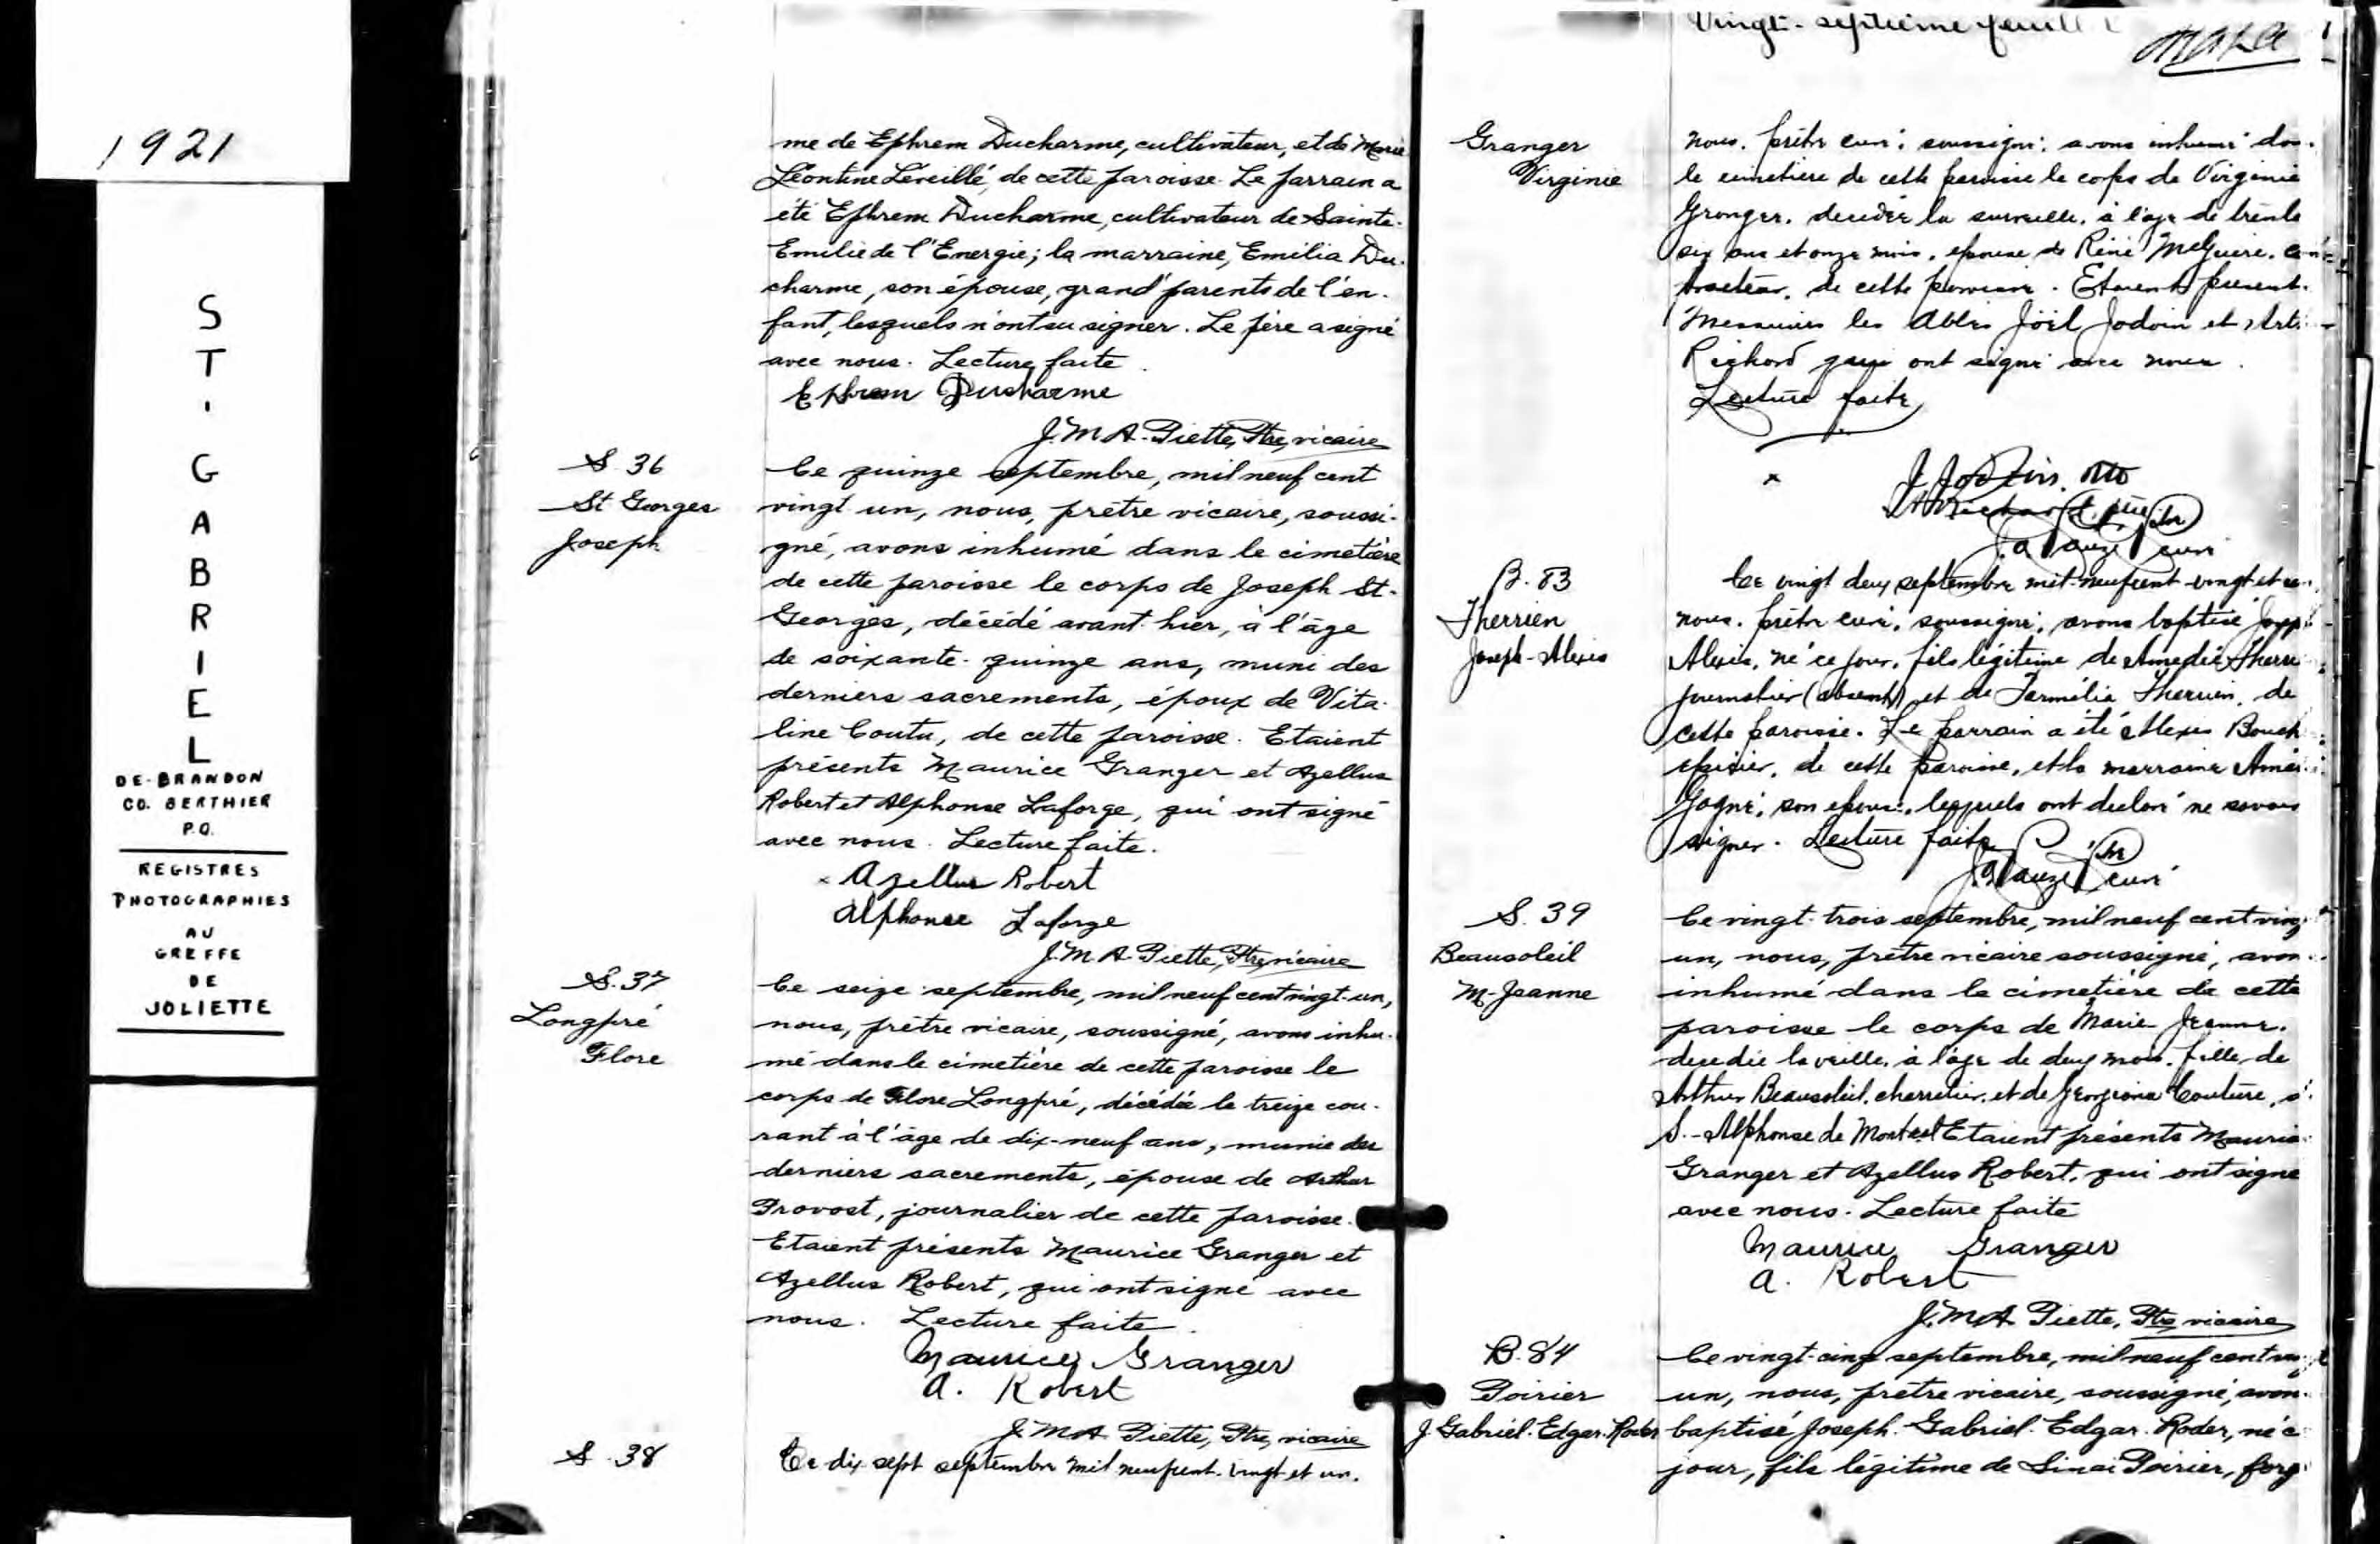 1921
ST. GABRIEL
DE-BRANDON
CO. BERTHIER
P.Q.
REGISTRES
PHOTOGRAPHIES
AU
GREFFE
DE
JOLIETTE
me de Ephrem Ducharme, cultivateur, et de Marie
Léontine Léveillé, de cette paroisse. Le parrain a
été Ephrem Ducharme, cultivateur de Sainte-
Emilie de l'Energie; la marraine, Emilia Du-
charme, son épouse, grand'parents de l'en-
fant, lesquels n'ont su signer. Le père a signé
avec nous. Lecture faite.
Ephrem Ducharme
J.M.A. Piette, Ptre, vicaire
S. 36
St Georges
Joseph
Ce quinze septembre, mil neuf cent
vingt un, nous, prêtre vicaire, soussi-
gné, avons inhumé dans le cimetière
de cette paroisse le corps de Joseph St-
Georges, décédé avant hier, à l'âge
de soixante-quinze ans, muni des
derniers sacrements, époux de Vita-
line Coutu, de cette paroisse. Etaient
présents Maurice Granger et Azellus
Robert et Alphonse Laforge, qui ont signé
avec nous. Lecture faite.
x Azellus Robert
Alphonse Laforge
J.M.A. Piette, Ptre, vicaire
S. 37
Longpré
Flore
Ce seize septembre, mil neuf cent vingt-un,
nous, prêtre vicaire, soussigné, avons inhu-
mé dans le cimetière de cette paroisse le
corps de Flore Longpré, décédée le treize cou-
rant à l'âge de dix-neuf ans, munie des
derniers sacrements, épouse de Arthur
Provost, journalier de cette paroisse.
Etaient présents Maurice Granger et
Azellus Robert, qui ont signé avec
nous. Lecture faite.
Maurice Granger
A. Robert
J.M.A. Piette, Ptre, vicaire
S. 38
Ce dix sept septembre mil neuf cent vingt et un.
Vingt-septième feuill
Granger
Virginie
nous. prêtre curé soussigné, avons inhumé dans
le cimetière de cette paroisse le corps de Virginie
Granger. décédée la surveille, à l'âge de trente
six ans et onze mois, épouse de Réné McGuire,
de cette paroisse. Etaient présents
Messires les Abbés Joël Jodoin et
Richard qui ont signé avec nous.
Lecture faite
x
J. Jodoin.
A. Richard
curé
B. 83
Therrien
Joseph-Alexis
Ce vingt deux septembre mil-neuf cent vingt et un
nous. prêtre curé, soussigné, avons baptisé Joseph
Alexis, né ce jour, fils légitime de Amedée Therri
journalier (absent) et de Therrien, de
cette paroisse. Le parrain a été Alexis Bouch
de cette paroisse, et la marraine
Gagné, son épouse, lesquels ont déclaré ne savoir
signer. Lecture faite
curé
S. 39
Beausoleil
M-Jeanne
Ce vingt-trois septembre, mil neuf cent ving
un, nous, prêtre vicaire soussigné, avon
inhumé dans le cimetière de cette
paroisse le corps de Marie-Jeanne.
décédée la veille, à l'âge de deux mois, fille de
Arthur Beausoleil, charretier, et de Georgiana Couture,
S.-Alphonse de Montreal Etaient présents Mauric
Granger et Azellus Robert, qui ont signé
avec nous. Lecture faite
Maurice Granger
A. Robert
J.M.A. Piette, Ptre, vicaire
B. 84
Poirier
J. Gabriel-Edgar-Roder
Ce vingt-cinq septembre, mil neuf cent vingt
un, nous, prêtre vicaire, soussigné, avon
baptisé Joseph-Gabriel-Edgar-Roder, né c
jour, fils légitime de Sinaï Poirier, forg